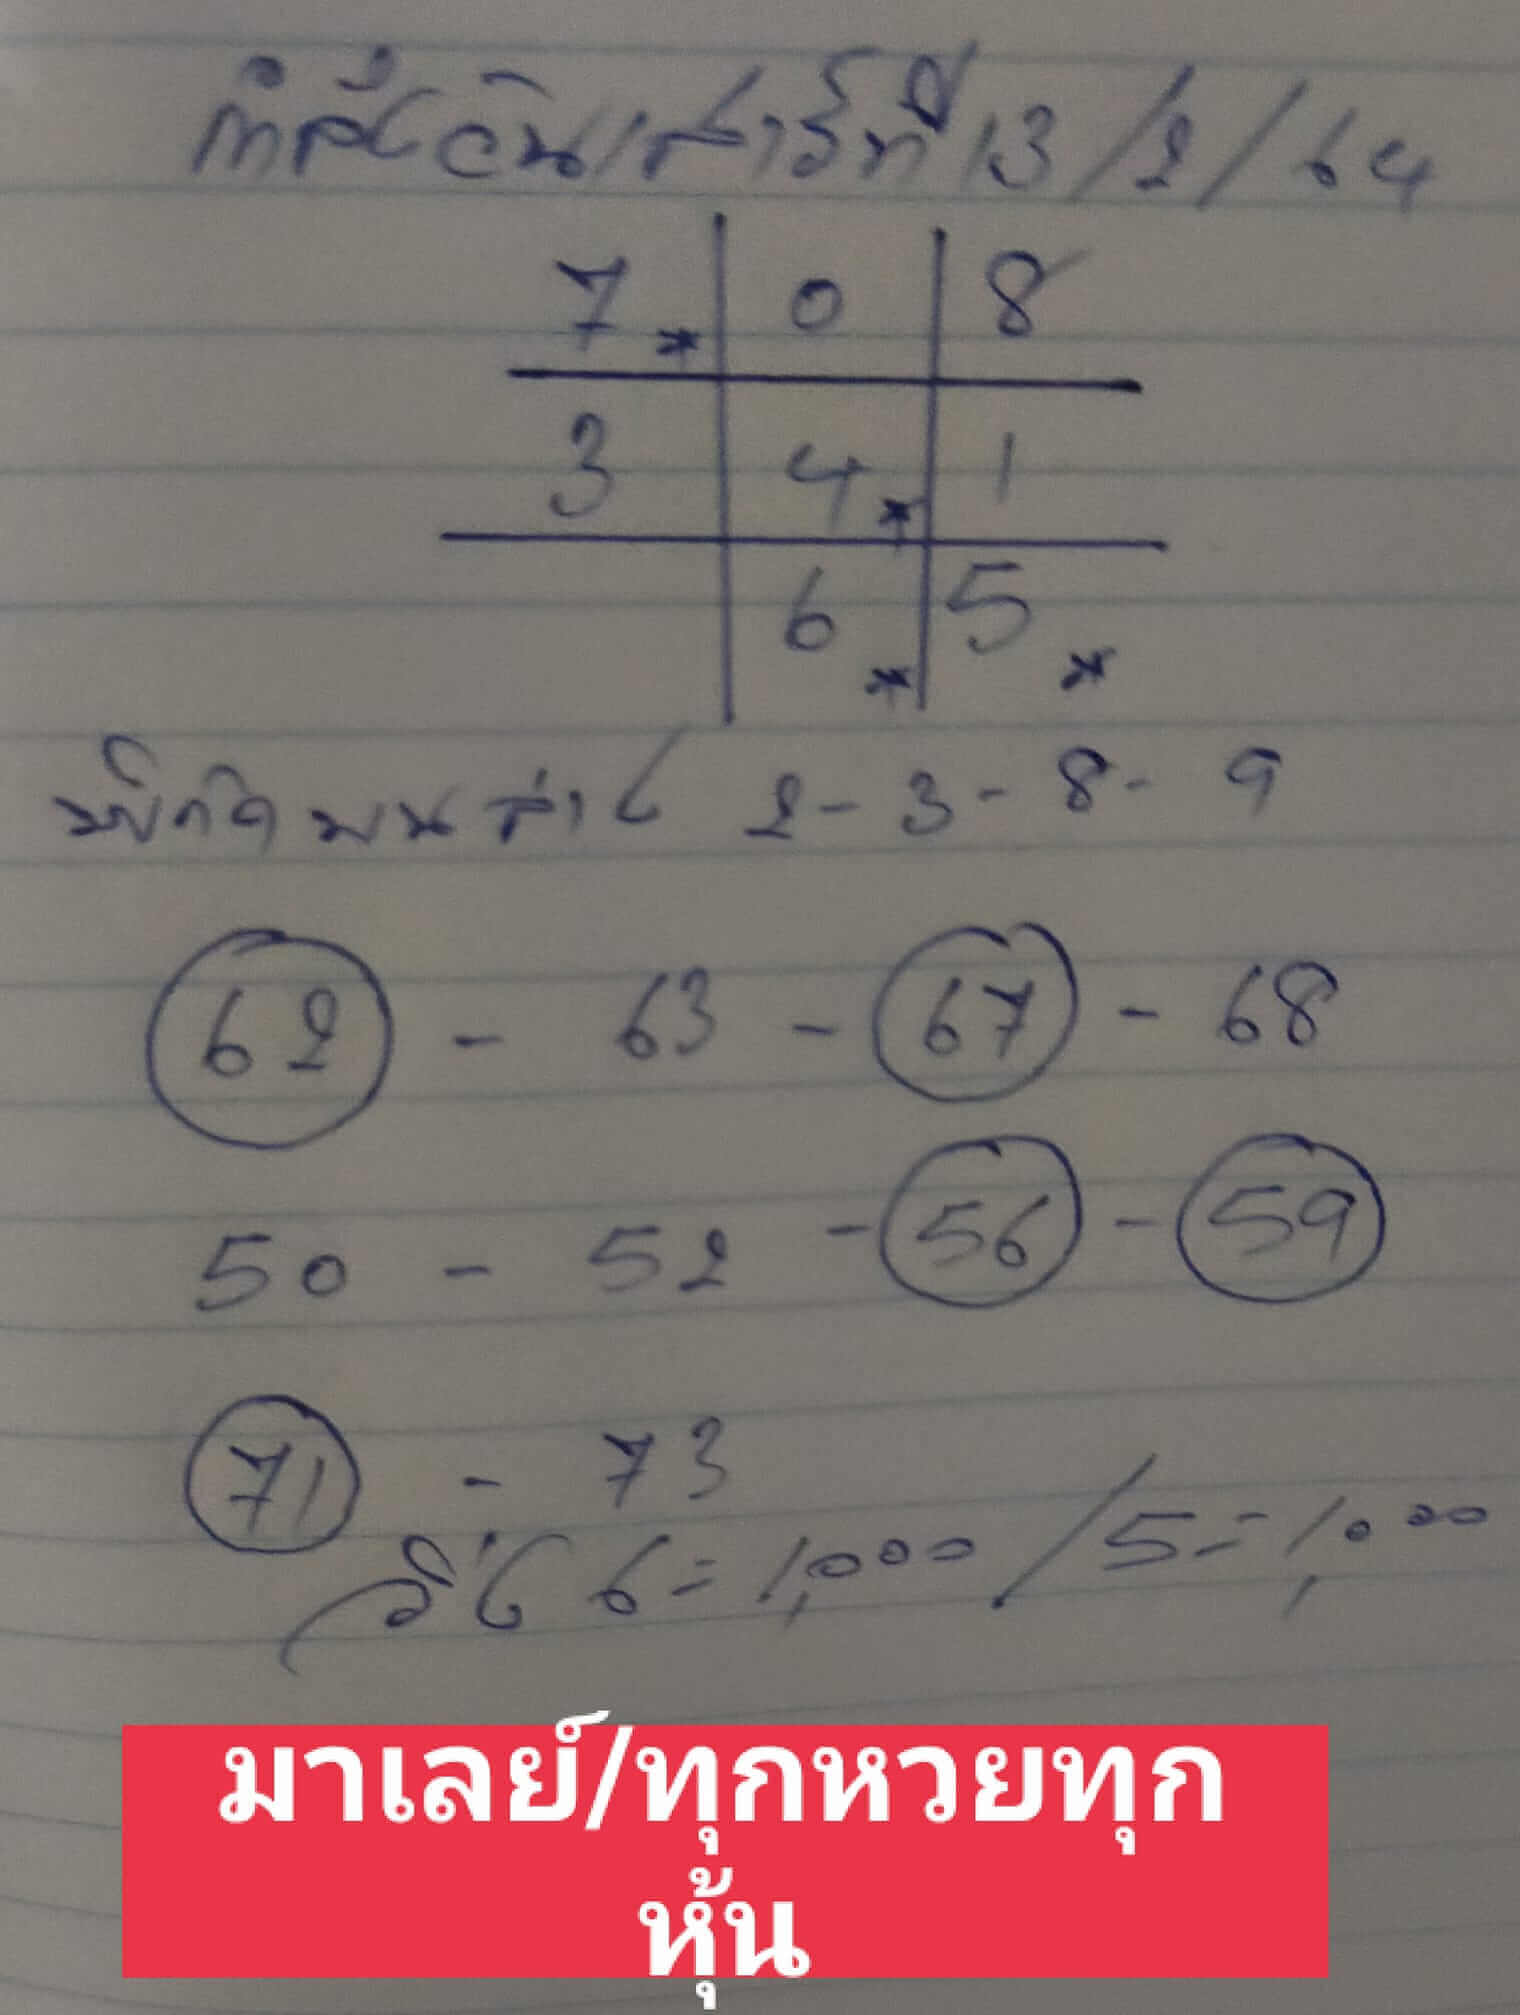 วันเสาร์ที่ 13/2/64
7* 0 8
3 4* 1
6* 5*
บน ล่าง 2-3-8-9
62 - 63 - 67 - 68
50 - 52 - 56 - 59
71 - 73
วิ่ง 6=1,000/5=1,000
มาเลย์/ทุกหวยทุก
หุ้น